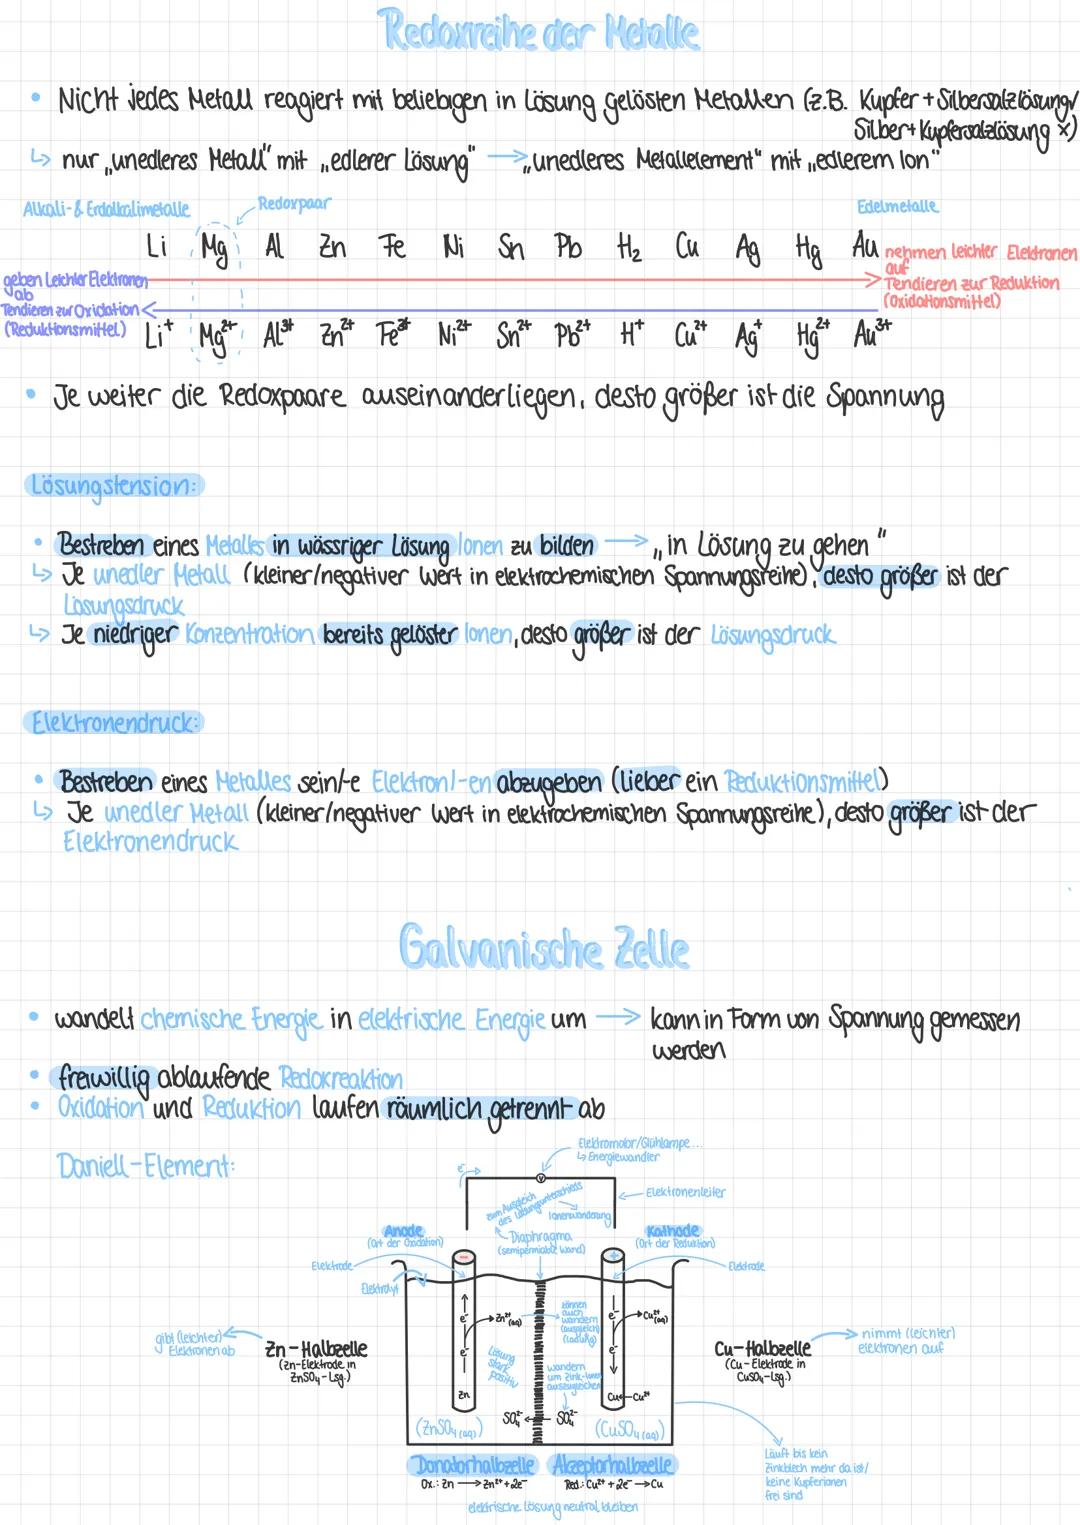 Redoxreihe der Metalle
• Nicht jedes Metall reagiert mit beliebigen in Lösung gelösten Metallen (z.B. Kupfer + Silbersalzlösung √
Silber + Kupfersalzlösung x)
↳ nur „unedleres Metall" mit „edlerer Lösung" → „unedleres Metallelement" mit „edlerem Ion"
Alkali- & Erdalkalimetalle
Redoxpaar
Edelmetalle
Li Mg Al Zn Fe Ni Sn Pb H₂ Cu Ag Hg Au
nehmen leichter Elektronen
auf
Tendieren zur Reduktion
(Oxidationsmittel)
geben leichter Elektronen
ab
Tendieren zur Oxidation
(Reduktionsmittel)
Li⁺ Mg²⁺ Al³⁺ Zn²⁺ Fe³⁺ Ni²⁺ Sn²⁺ Pb²⁺ H⁺ Cu²⁺ Ag⁺ Hg²⁺ Au³⁺
• Je weiter die Redoxpaare auseinanderliegen, desto größer ist die Spannung
Lösungstension:
• Bestreben eines Metalles in wässriger Lösung Ionen zu bilden → „in Lösung zu gehen"
↳ Je unedler Metall (kleiner/negativer Wert in elektrochemischen Spannungsreihe), desto größer ist der
Lösungsdruck
↳ Je niedriger Konzentration bereits gelöster Ionen, desto größer ist der Lösungsdruck
Elektronendruck:
• Bestreben eines Metalles sein/-e Elektron/-en abzugeben (lieber ein Reduktionsmittel)
↳ Je unedler Metall (kleiner/negativer Wert in elektrochemischen Spannungsreihe), desto größer ist der
Elektronendruck
Galvanische Zelle
• wandelt chemische Energie in elektrische Energie um → kann in Form von Spannung gemessen
werden
• freiwillig ablaufende Redoxreaktion
• Oxidation und Reduktion laufen räumlich getrennt ab
Daniell-Element:
Elektromotor/Glühlampe...
↳ Energiewandler
e⁻
V
Elektronenleiter
zum Ausgleich
des Ladungsunterschieds
Ionenwanderung
Anode
(Ort der Oxidation)
Diaphragma
(semipermiable Wand)
Kathode
(Ort der Reduktion)
Elektrode
Elektrode
Elektrolyt
−
+
e⁻
e⁻
Zn
Zn²⁺(aq)
können
auch
wandern
(ausgleich)
(Ladung)
e⁻
e⁻
Cu²⁺(aq)
Cu
Cu²⁺
Lösung
stark
positiv
wandern
um Zink-Ionen
auszugleichen
gibt (leichter)
Elektronen ab
Zn-Halbzelle
(Zn-Elektrode in
ZnSO₄-Lsg.)
Cu-Halbzelle
(Cu-Elektrode in
CuSO₄-Lsg.)
nimmt (leichter)
elektronen auf
SO₄²⁻ ← SO₄²⁻
(ZnSO₄ (aq))
(CuSO₄ (aq))
Läuft bis kein
Zinkblech mehr da ist/
keine Kupferionen
frei sind
Donatorhalbzelle
Akzeptorhalbzelle
Ox.: Zn → Zn²⁺ + 2e⁻
Red.: Cu²⁺ + 2e⁻ → Cu
elektrische Lösung neutral bleiben